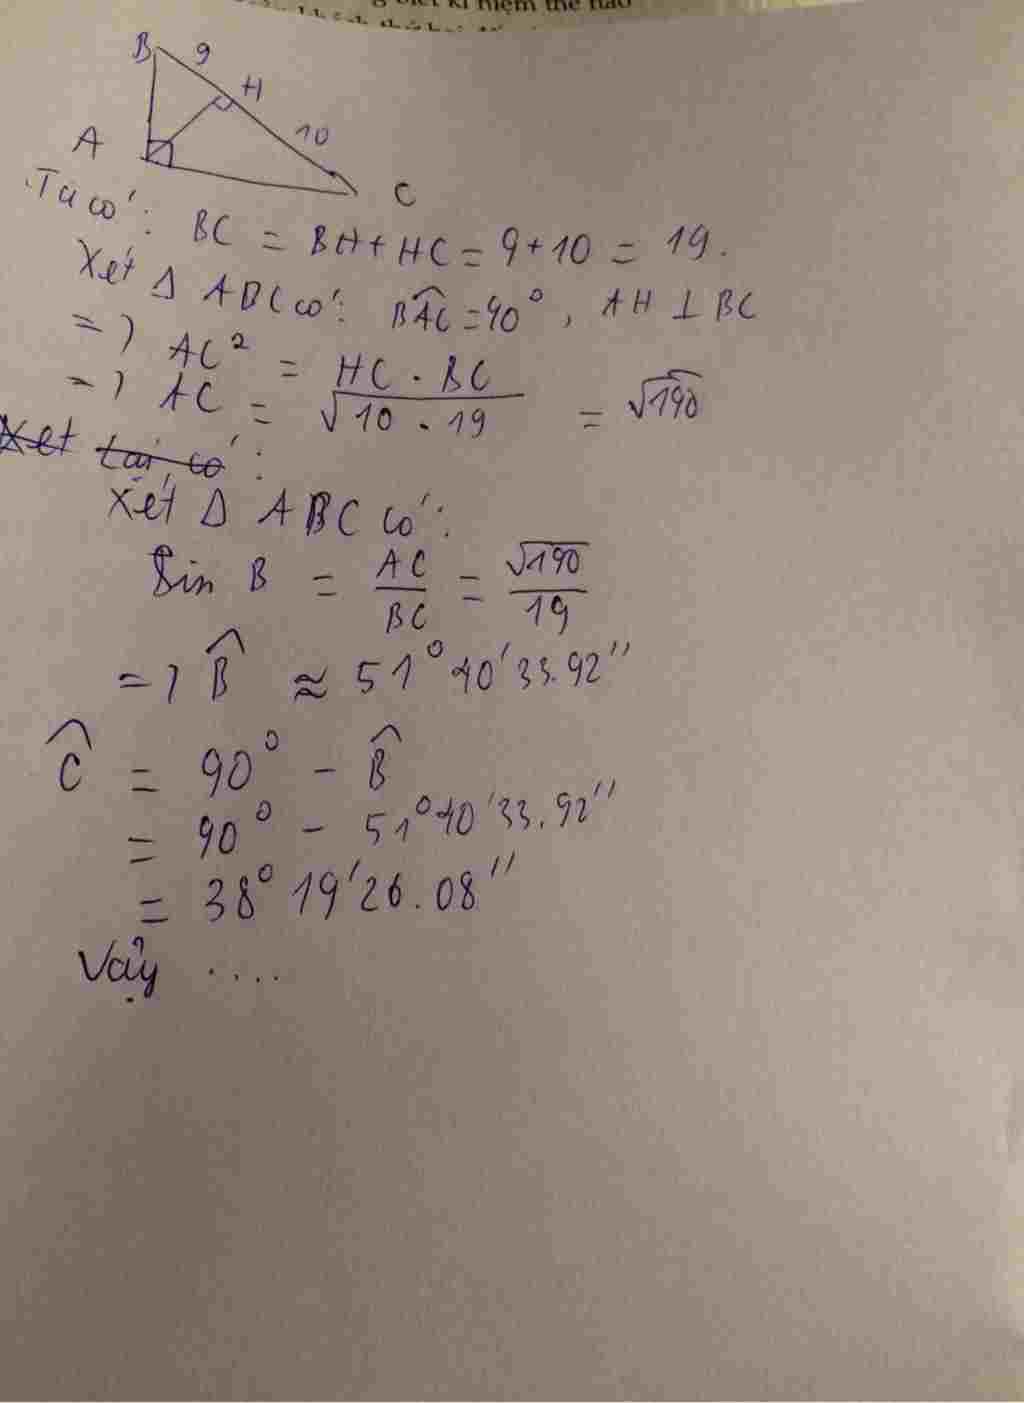 B 9 H
10
A
C
Ta có: BC = BH + HC = 9 + 10 = 19.
Xét Δ ABC có: BAC = 90°, AH ⊥ BC
=> AC² = HC . BC
=> AC = √10 . 19 = √190
Xet tai có:
Xét Δ ABC có:
Sin B = AC/BC = √190/19
=> B ≈ 51° 40' 33.92''
C = 90° - B
= 90° - 51° 40' 33.92''
= 38° 19' 26.08''
Vậy ....